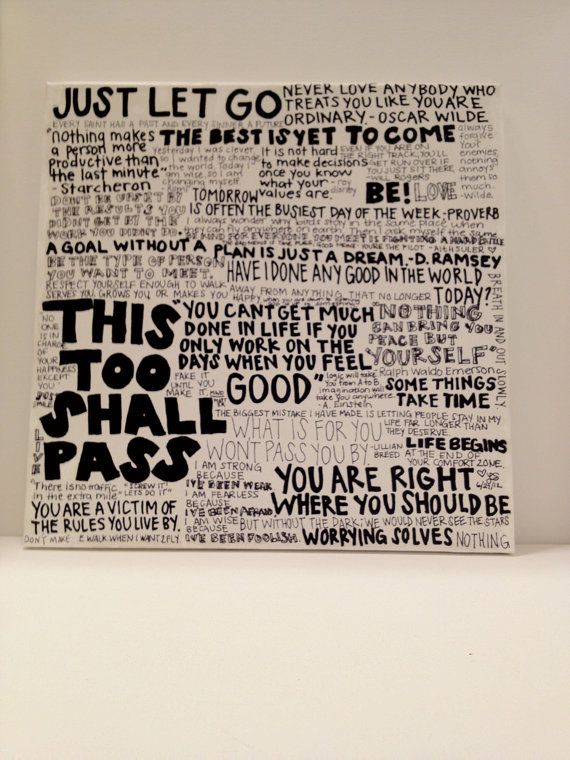 JUST LET GO
NEVER LOVE ANYBODY WHO
TREATS YOU LIKE YOU ARE
ORDINARY. - OSCAR WILDE
EVERY SAINT HAD A PAST AND EVERY SINNER A FUTURE
"nothing makes
a person more
productive than
the last minute"
- Starcheron
THE BEST IS YET TO COME
always
forgive
your
enemies,
nothing
annoys
them so
much.
-Wilde.
Yesterday I was clever,
so I wanted to change
the world. Today I
am wise, so I am
changing myself
It is not hard
to make decisions
once you know
what your
values are.
- roy
disney
EVEN IF YOU ARE ON
THE RIGHT TRACK, YOU'LL
GET RUN OVER IF
YOU JUST SIT THERE
- WILL ROGERS
BE!
LOVE
DON'T BE UPSET BY
THE RESULTS YOU
DIDN'T GET BY THE
WORK YOU DIDN'T DO.
TOMORROW
IS OFTEN THE BUSIEST DAY OF THE WEEK - PROVERB
I always wonder why birds stay in the same place when
they can fly anywhere on earth. Then I ask myself the same
BE KIND FOR EVERYONE YOU MEET IS FIGHTING A HARD BATTLE
A GOAL WITHOUT A PLAN IS JUST A DREAM. - D. RAMSEY
BE THE TYPE OF PERSON
YOU WANT TO MEET.
HAVE I DONE ANY GOOD IN THE WORLD
TODAY?
RESPECT YOURSELF ENOUGH TO WALK AWAY FROM ANYTHING THAT NO LONGER
SERVES YOU, GROWS YOU, OR MAKES YOU HAPPY
BREATH IN AND OUT SLOWLY
NO
ONE IS
IN CHARGE
OF YOUR
HAPPINESS
EXCEPT
YOU
THIS
TOO
SHALL
PASS
YOU CANT GET MUCH
DONE IN LIFE IF YOU
ONLY WORK ON THE
DAYS WHEN YOU FEEL
GOOD"
NOTHING
CAN BRING YOU
PEACE BUT
YOURSELF"
Ralph Waldo Emerson
FAKE IT
UNTIL YOU
MAKE IT.
"logic will take
you from A to B,
imagination will
take you anywhere.
- A. Einstein
SOME THINGS
TAKE TIME
SMILE
LIVE
THE BIGGEST MISTAKE I HAVE MADE IS LETTING PEOPLE STAY IN MY
LIFE FAR LONGER THAN
THEY DESERVE
WHAT IS FOR YOU
WONT PASS YOU BY.
-LILLIAN
BREED
LIFE BEGINS
AT THE END OF
YOUR COMFORT ZONE.
I AM STRONG
BECAUSE
I'VE BEEN WEAK
I AM FEARLESS
BECAUSE
I'VE BEEN AFRAID.
I AM WISE
BECAUSE
I'VE BEEN FOOLISH.
YOU ARE RIGHT
WHERE YOU SHOULD BE
"There is no traffic
in the extra mile"
"SCREW IT!
LET'S DO IT"
YOU ARE A VICTIM OF
THE RULES YOU LIVE BY.
BUT WITHOUT THE DARK, WE WOULD NEVER SEE THE STARS
DON'T MAKE E WALK WHEN I WANT 2 FLY.
WORRYING SOLVES NOTHING